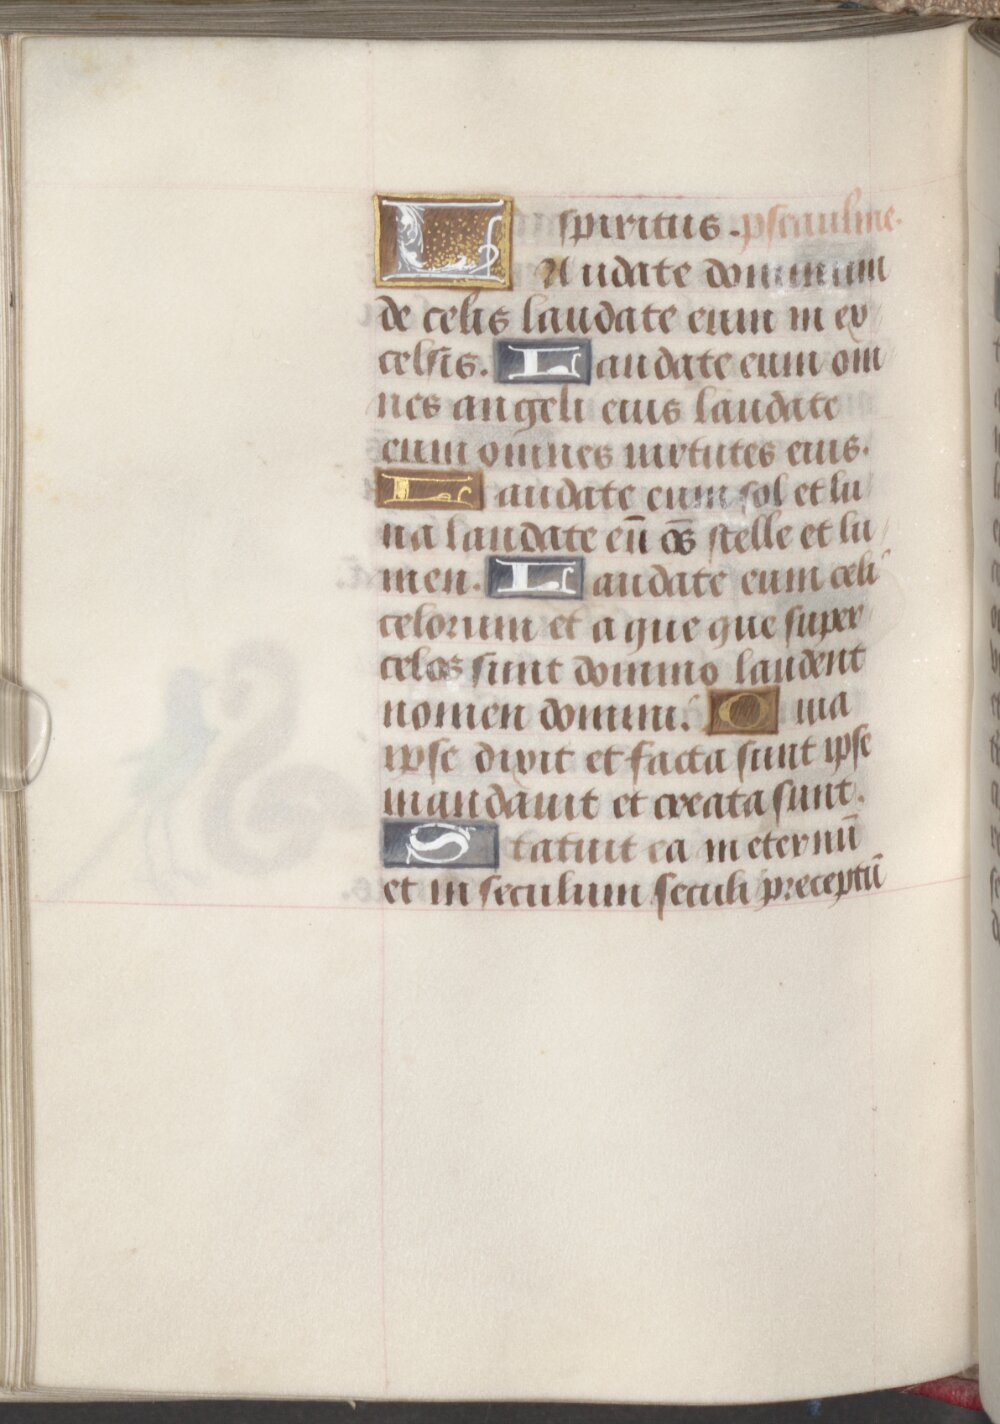 spiritus. ps aulme.
Laudate dominum
de celis laudate eum in ex
celsis. Laudate eum om
nes angeli eius laudate
eum omnes uirtutes eius.
Laudate eum sol et lu
na laudate eū oēs stelle et lu
men. Laudate eum celi
celorum et a que que super
celos sunt domino laudent
nomen domini. Q uia
ipse dixit et facta sunt ipse
mandauit et creata sunt.
Statuit ea in eternū
et in seculum seculi preceptū